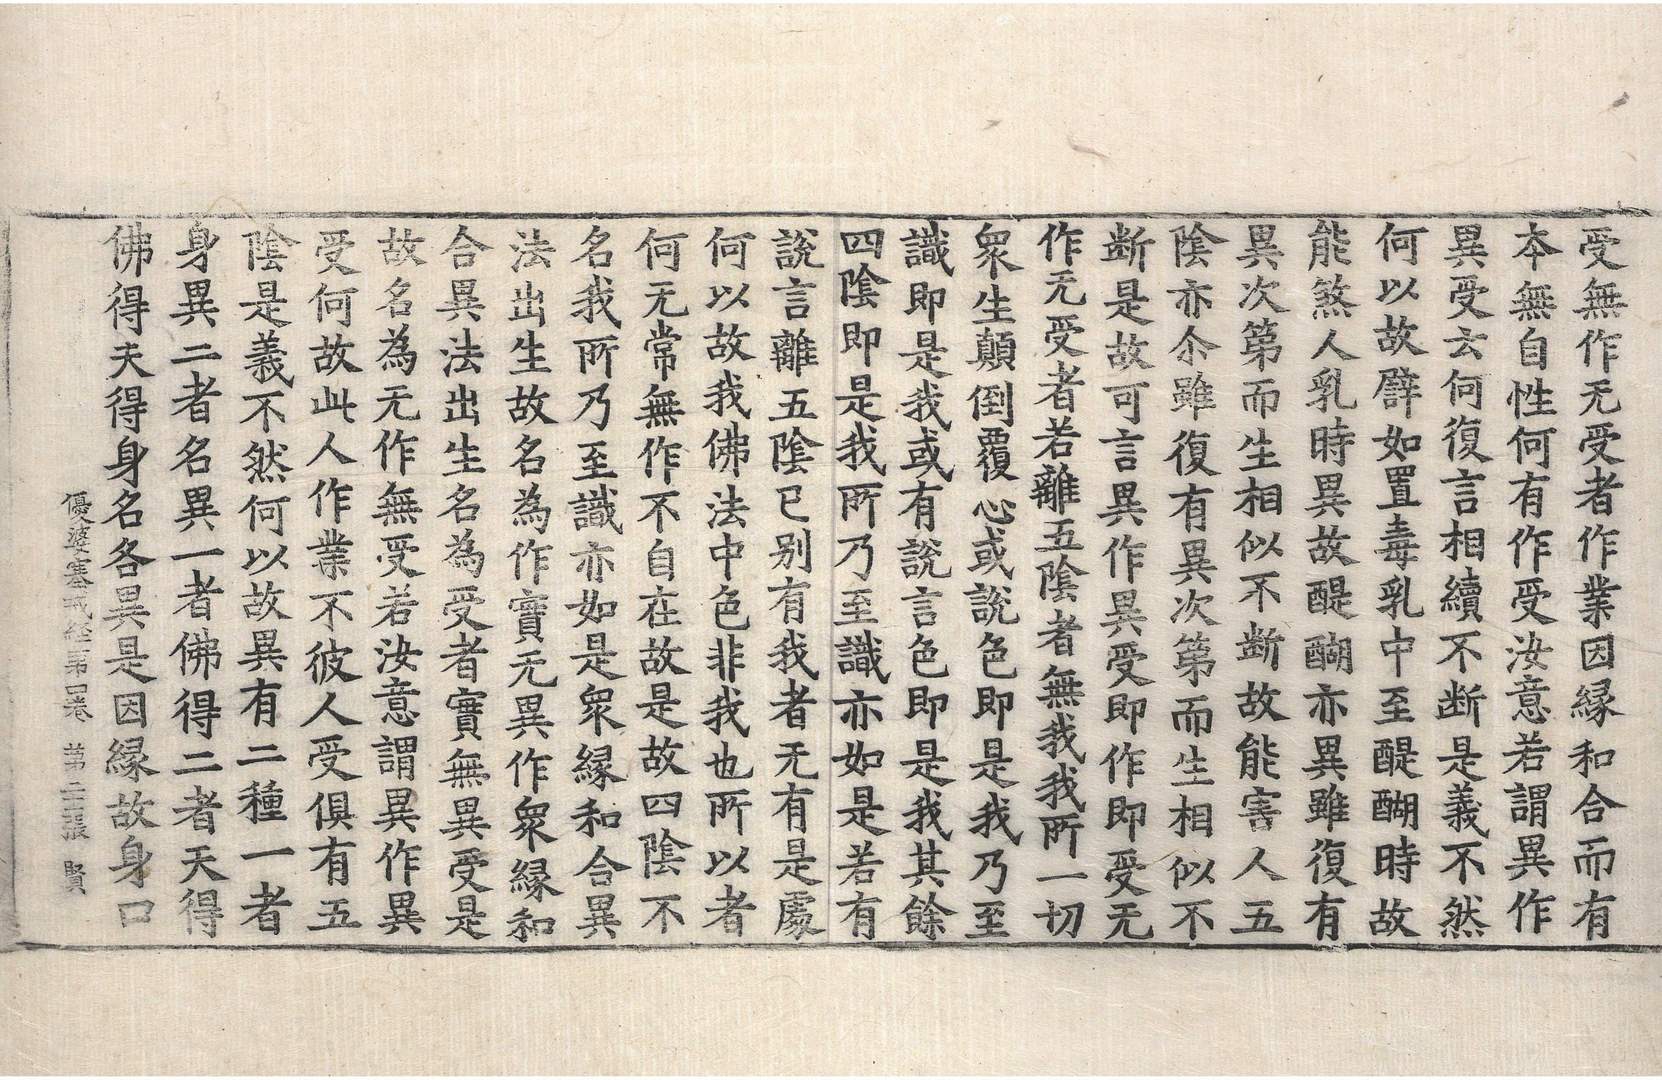 受無作无受者作業因縁和合而有
本無自性何有作受汝意若謂異作
異受云何復言相續不断是義不然
何以故譬如置毒乳中至醍醐時故
能煞人乳時異故醍醐亦異雖復有
異次第而生相似不断故能害人五
陰亦尒雖復有異次第而生相似不
断是故可言異作異受即作即受无
作无受者若離五陰者無我我所一切
衆生顛倒覆心或說色即是我乃至
識即是我或有說言色即是我其餘
四陰即是我所乃至識亦如是若有
說言離五陰已別有我者无有是處
何以故我佛法中色非我也所以者
何无常無作不自在故是故四陰不
名我所乃至識亦如是衆縁和合異
法出生故名為作實无異作衆縁和
合異法出生名為受者實無異受是
故名為无作無受若汝意謂異作異
受何故此人作業不彼人受俱有五
陰是義不然何以故異有二種一者
身異二者名異一者佛得二者天得
佛得天得身名各異是因縁故身口
優婆塞戒経第四卷 第二張 賢